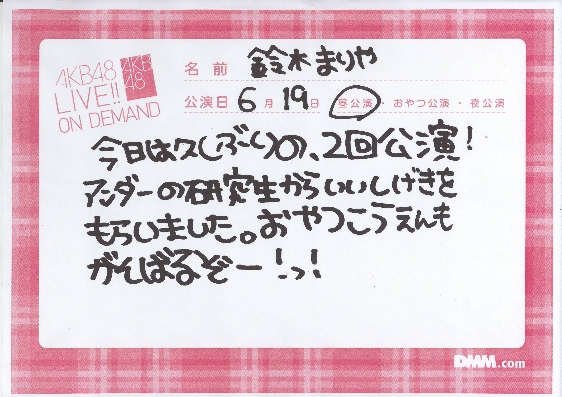 AKB48
LIVE!!
ON DEMAND
AKB
48
名前 鈴木まりや
公演日 6月19日 昼公演・おやつ公演・夜公演
今日は久しぶりの、2回公演!
アンダーの研究生からいいしげきを
もらいました。おやつこうえんも
がんばるぞー!っ!
DMM.com